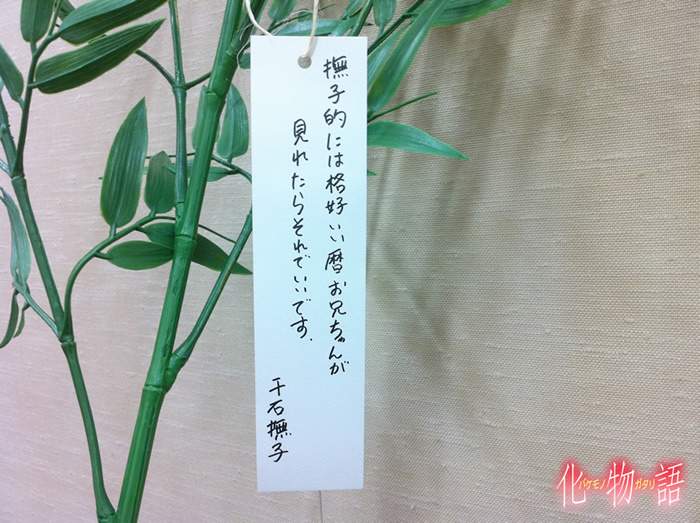 撫子的には格好いい暦お兄ちゃんが
見れたらそれでいいです.
千石撫子
化物語
バケモノガタリ